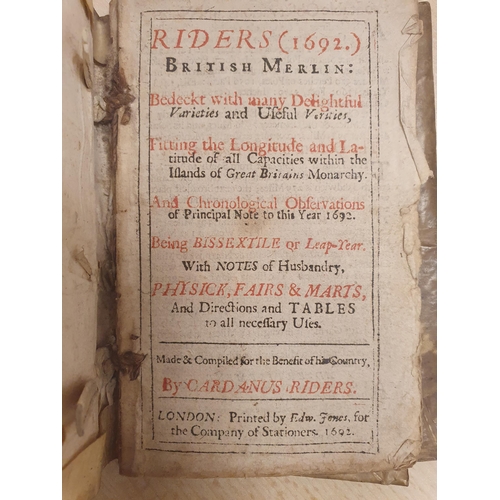 RIDERS (1692.)
BRITISH MERLIN:
Bedeckt with many Delightful
Varieties and Useful Verities,
Fitting the Longitude and La-
titude of all Capacities within the
Islands of Great Britains Monarchy.
And Chronological Observations
of Principal Note to this Year 1692.
Being BISSEXTILE or Leap-Year.
With NOTES of Husbandry,
PHYSICK, FAIRS & MARTS,
And Directions and TABLES
to all necessary Uses.
Made & Compiled for the Benefit of his Country,
By CARDANUS RIDERS.
LONDON: Printed by Edw. Jones, for
the Company of Stationers. 1692.